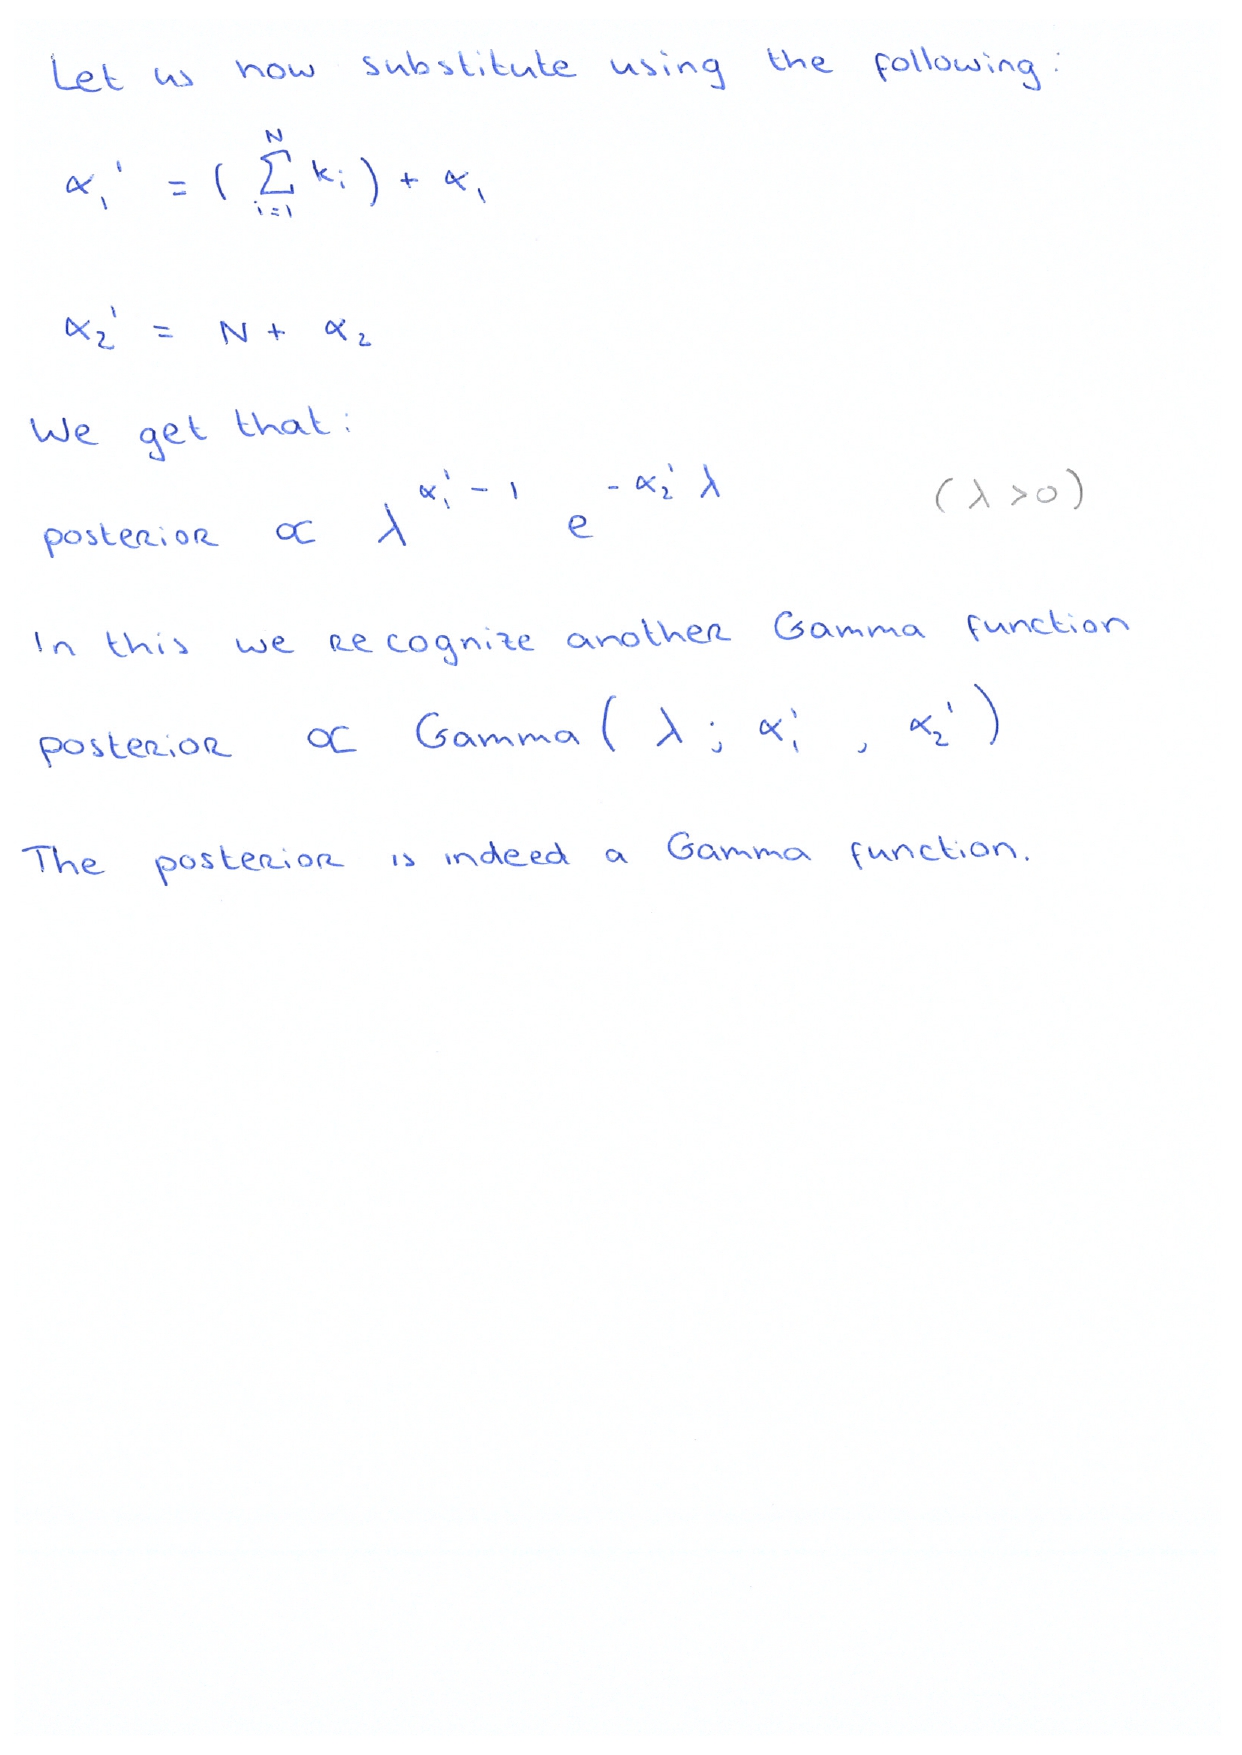 Let us now substitute using the following:
α₁' = ( ∑ᵢ₌₁ᴺ kᵢ ) + α₁
α₂' = N + α₂
We get that:
posterior ∝ λ^(α₁' - 1) e^(-α₂' λ) (λ > 0)
In this we recognize another Gamma function
posterior ∝ Gamma ( λ ; α₁' , α₂' )
The posterior is indeed a Gamma function.